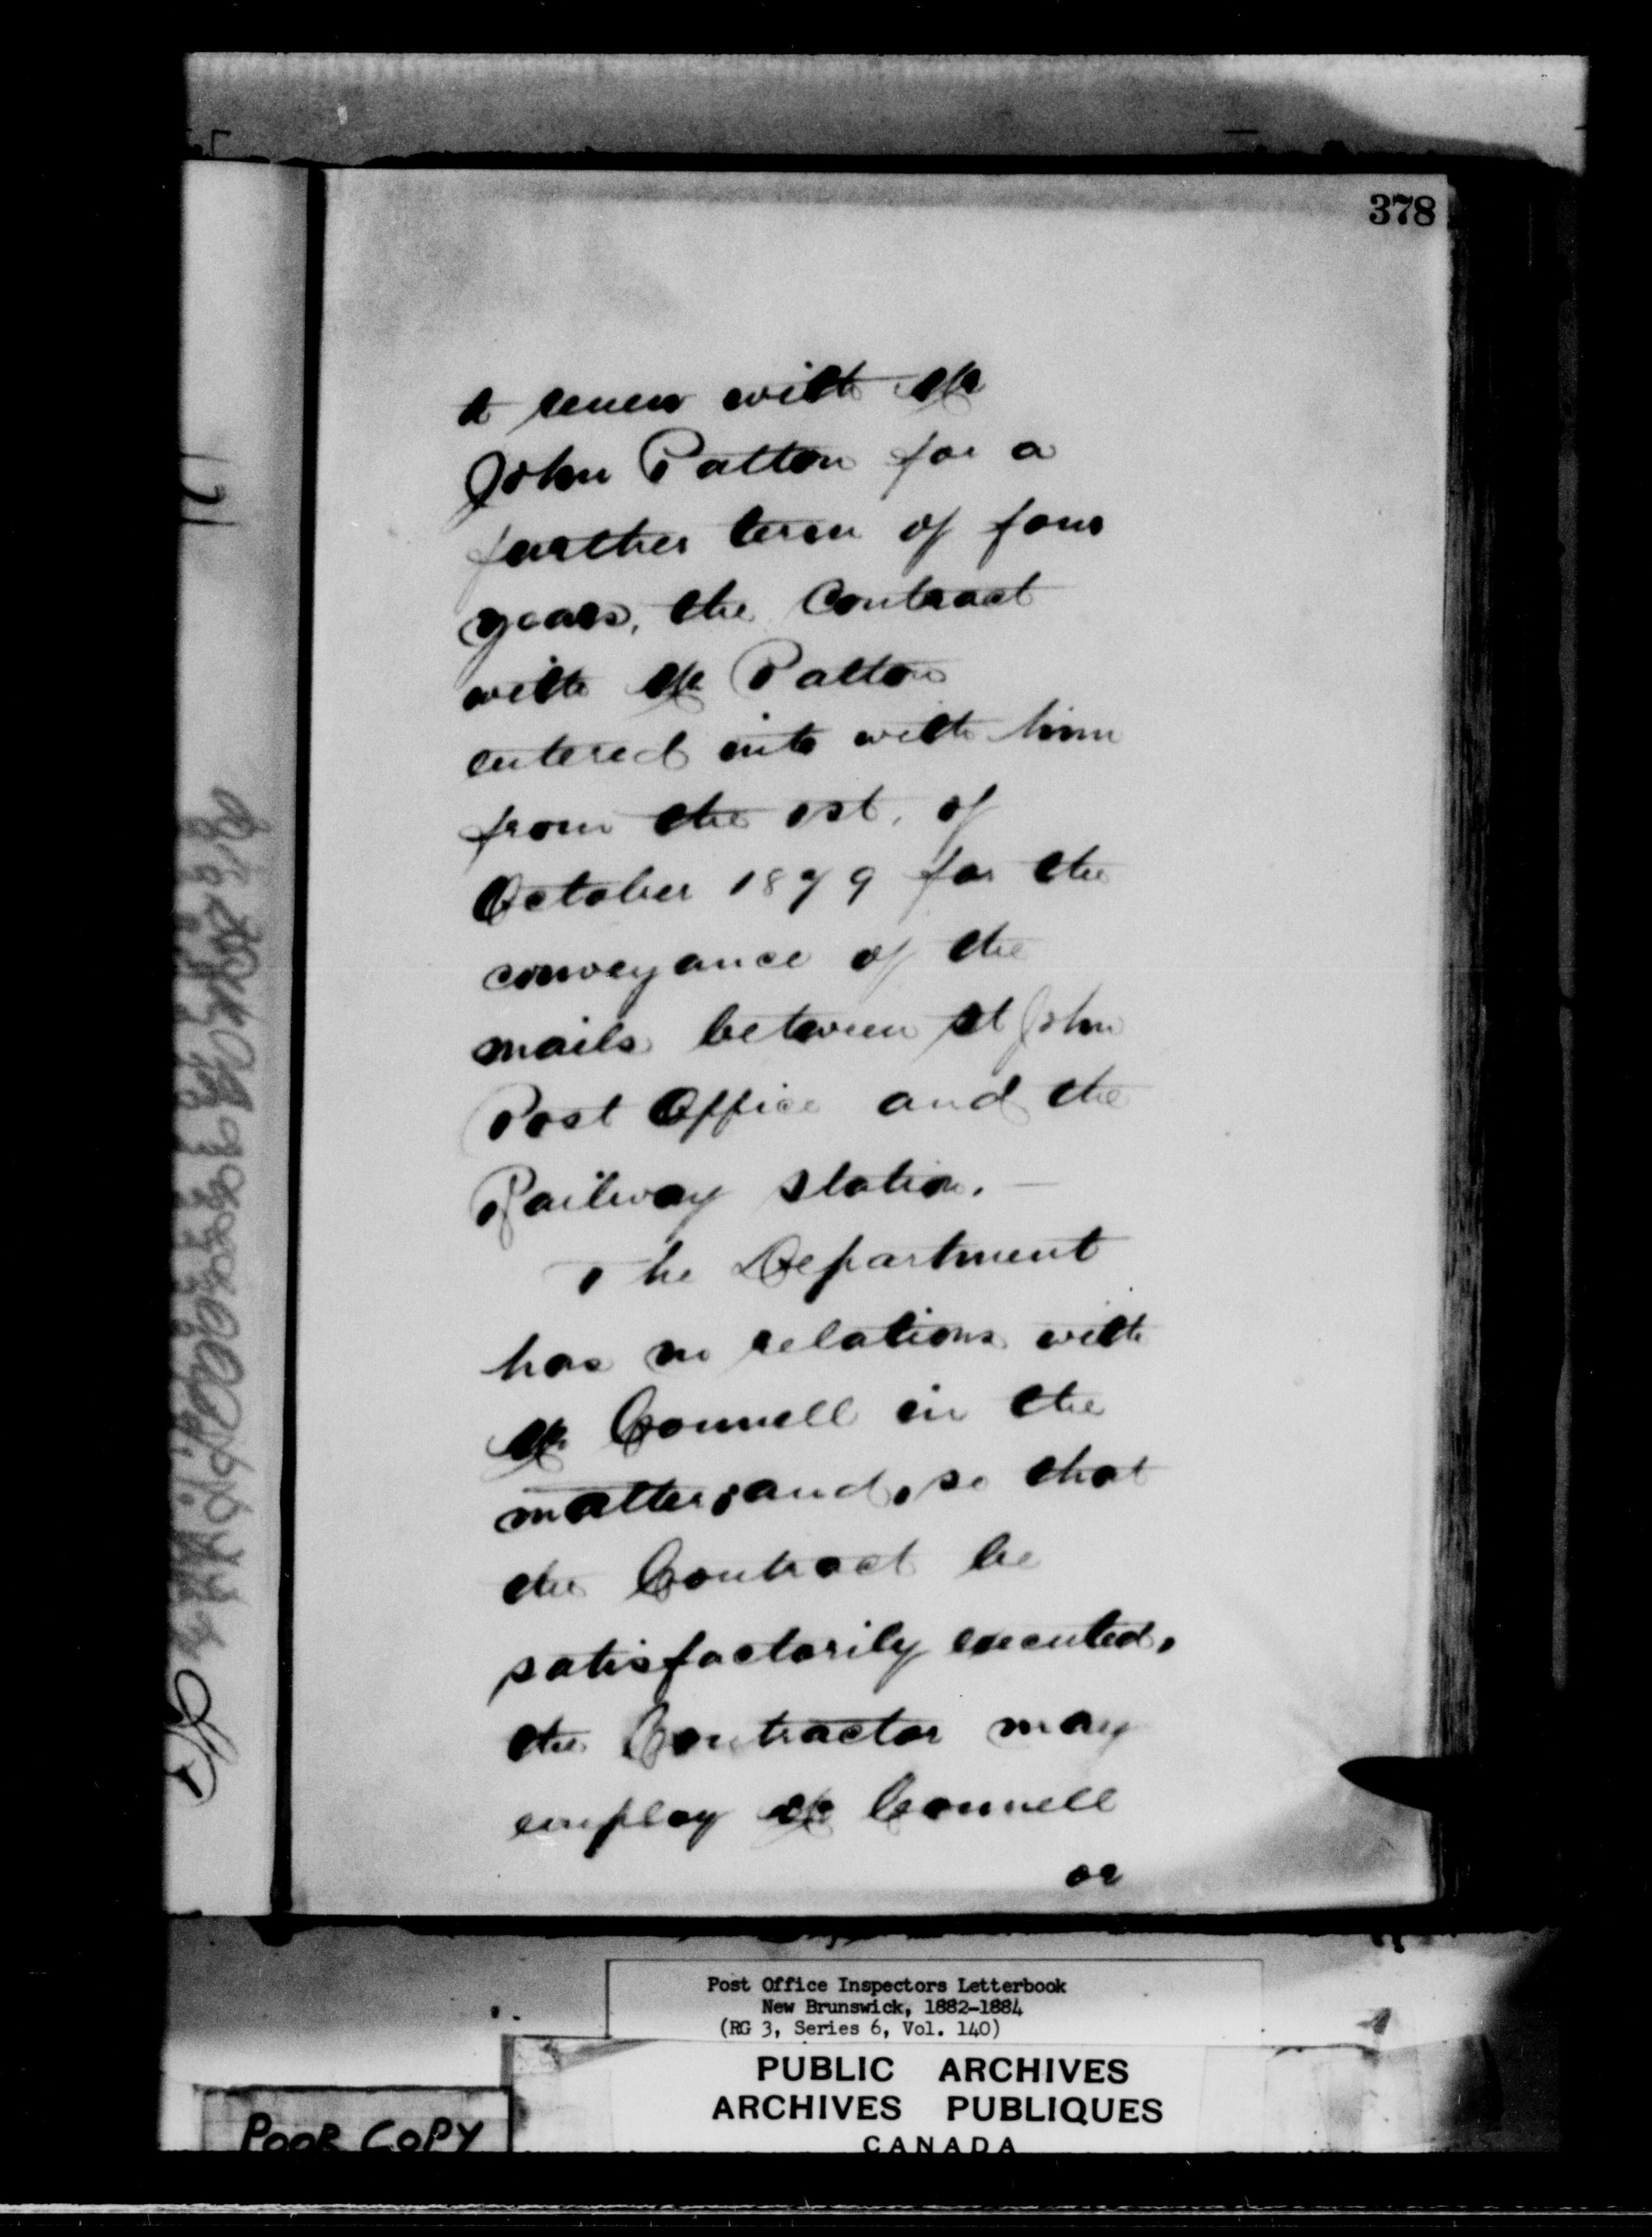 378
to renew with Mr
John Patton for a
further term of four
years, the Contract
with Mr Patton
entered into with him
from the 1st. of
October 1879 for the
conveyance of the
mails between St John
Post Office and the
Railway Station. —
The Department
has no relations with
Mr Connell in the
matter, and, so that
the Contract be
satisfactorily executed,
the Contractor may
employ Mr Connell
or
Post Office Inspectors Letterbook
New Brunswick, 1882-1884
(RG 3, Series 6, Vol. 140)
PUBLIC ARCHIVES
ARCHIVES PUBLIQUES
CANADA
POOR COPY